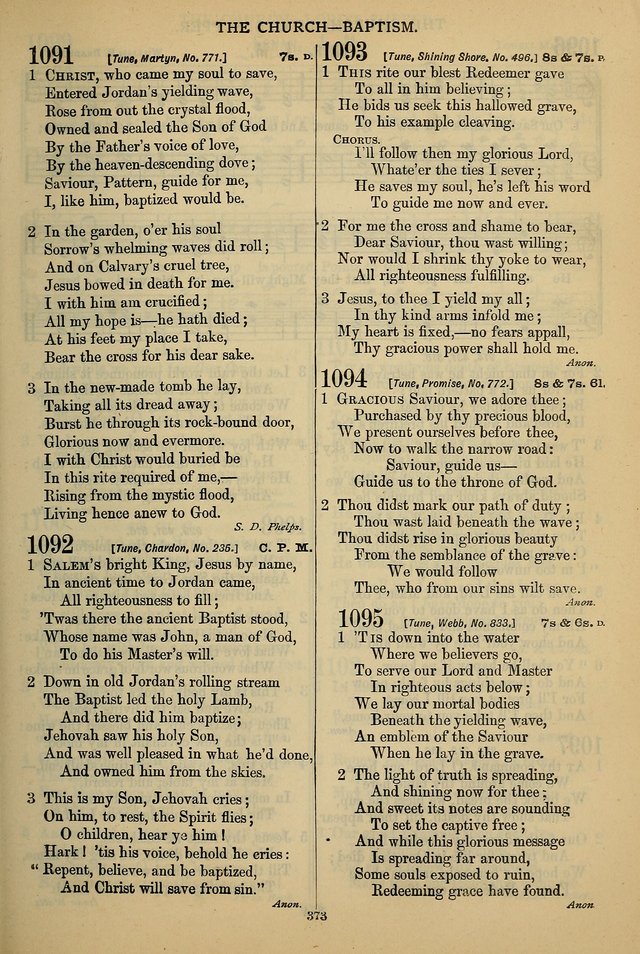 THE CHURCH—BAPTISM.
1091 [Tune, Martyn, No. 771.] 7s. D.
1 CHRIST, who came my soul to save,
Entered Jordan's yielding wave,
Rose from out the crystal flood,
Owned and sealed the Son of God
By the Father's voice of love,
By the heaven-descending dove;
Saviour, Pattern, guide for me,
I, like him, baptized would be.
2 In the garden, o'er his soul
Sorrow's whelming waves did roll;
And on Calvary's cruel tree,
Jesus bowed in death for me.
I with him am crucified;
All my hope is—he hath died;
At his feet my place I take,
Bear the cross for his dear sake.
3 In the new-made tomb he lay,
Taking all its dread away;
Burst he through its rock-bound door,
Glorious now and evermore.
I with Christ would buried be
In this rite required of me,—
Rising from the mystic flood,
Living hence anew to God.
S. D. Phelps.
1092 [Tune, Chardon, No. 235.] C. P. M.
1 SALEM'S bright King, Jesus by name,
In ancient time to Jordan came,
All righteousness to fill;
'Twas there the ancient Baptist stood,
Whose name was John, a man of God,
To do his Master's will.
2 Down in old Jordan's rolling stream
The Baptist led the holy Lamb,
And there did him baptize;
Jehovah saw his holy Son,
And was well pleased in what he'd done,
And owned him from the skies.
3 This is my Son, Jehovah cries;
On him, to rest, the Spirit flies;
O children, hear ye him!
Hark! 'tis his voice, behold he cries:
"Repent, believe, and be baptized,
And Christ will save from sin."
Anon.
1093 [Tune, Shining Shore, No. 496.] 8s & 7s. P.
1 THIS rite our blest Redeemer gave
To all in him believing;
He bids us seek this hallowed grave,
To his example cleaving.
CHORUS.
I'll follow then my glorious Lord,
Whate'er the ties I sever;
He saves my soul, he's left his word
To guide me now and ever.
2 For me the cross and shame to bear,
Dear Saviour, thou wast willing;
Nor would I shrink thy yoke to wear,
All righteousness fulfilling.
3 Jesus, to thee I yield my all;
In thy kind arms infold me;
My heart is fixed,—no fears appall,
Thy gracious power shall hold me.
Anon.
1094 [Tune, Promise, No. 772.] 8s & 7s. 6l.
1 GRACIOUS Saviour, we adore thee;
Purchased by thy precious blood,
We present ourselves before thee,
Now to walk the narrow road:
Saviour, guide us—
Guide us to the throne of God.
2 Thou didst mark our path of duty;
Thou wast laid beneath the wave;
Thou didst rise in glorious beauty
From the semblance of the grave:
We would follow
Thee, who from our sins wilt save.
Anon.
1095 [Tune, Webb, No. 833.] 7s & 6s. D.
1 'TIS down into the water
Where we believers go,
To serve our Lord and Master
In righteous acts below;
We lay our mortal bodies
Beneath the yielding wave,
An emblem of the Saviour
When he lay in the grave.
2 The light of truth is spreading,
And shining now for thee;
And sweet its notes are sounding
To set the captive free;
And while this glorious message
Is spreading far around,
Some souls exposed to ruin,
Redeeming grace have found.
Anon
373